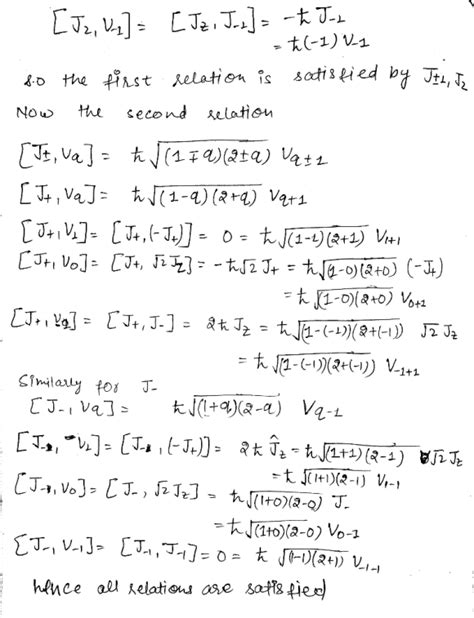 [J_z, V_-1] = [J_z, J_-1] = -ħ J_-1
= ħ(-1) V_-1
so the first relation is satisfied by J±1, J_z
Now the second relation
[J±, Vq] = ħ √(1∓q)(2±q) Vq±1
[J+, Vq] = ħ √(1-q)(2+q) Vq+1
[J+, V1] = [J+, (-J+)] = 0 = ħ √(1-1)(2+1) V1+1
[J+, V0] = [J+, √2 J_z] = -ħ√2 J+ = ħ √(1-0)(2+0) (-J+)
= ħ √(1-0)(2+0) V0+1
[J+, V-1] = [J+, J-] = 2ħ J_z = ħ √(1-(-1))(2+(-1)) √2 J_z
= ħ √(1-(-1))(2+(-1)) V-1+1
Similarly for J-
[J-, Vq] = ħ √(1+q)(2-q) Vq-1
[J-, V1] = [J-, (-J+)] = 2ħ Ĵ_z = ħ √(1+1)(2-1) √2 J_z
= ħ √(1+1)(2-1) V1-1
[J-, V0] = [J-, √2 J_z] = ħ √(1+0)(2-0) J-
= ħ √(1+0)(2-0) V0-1
[J-, V-1] = [J-1, J-1] = 0 = ħ √(1-1)(2+1) V-1-1
hence all relations are satisfied